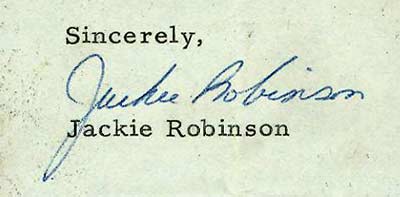 Sincerely,
Jackie Robinson
Jackie Robinson